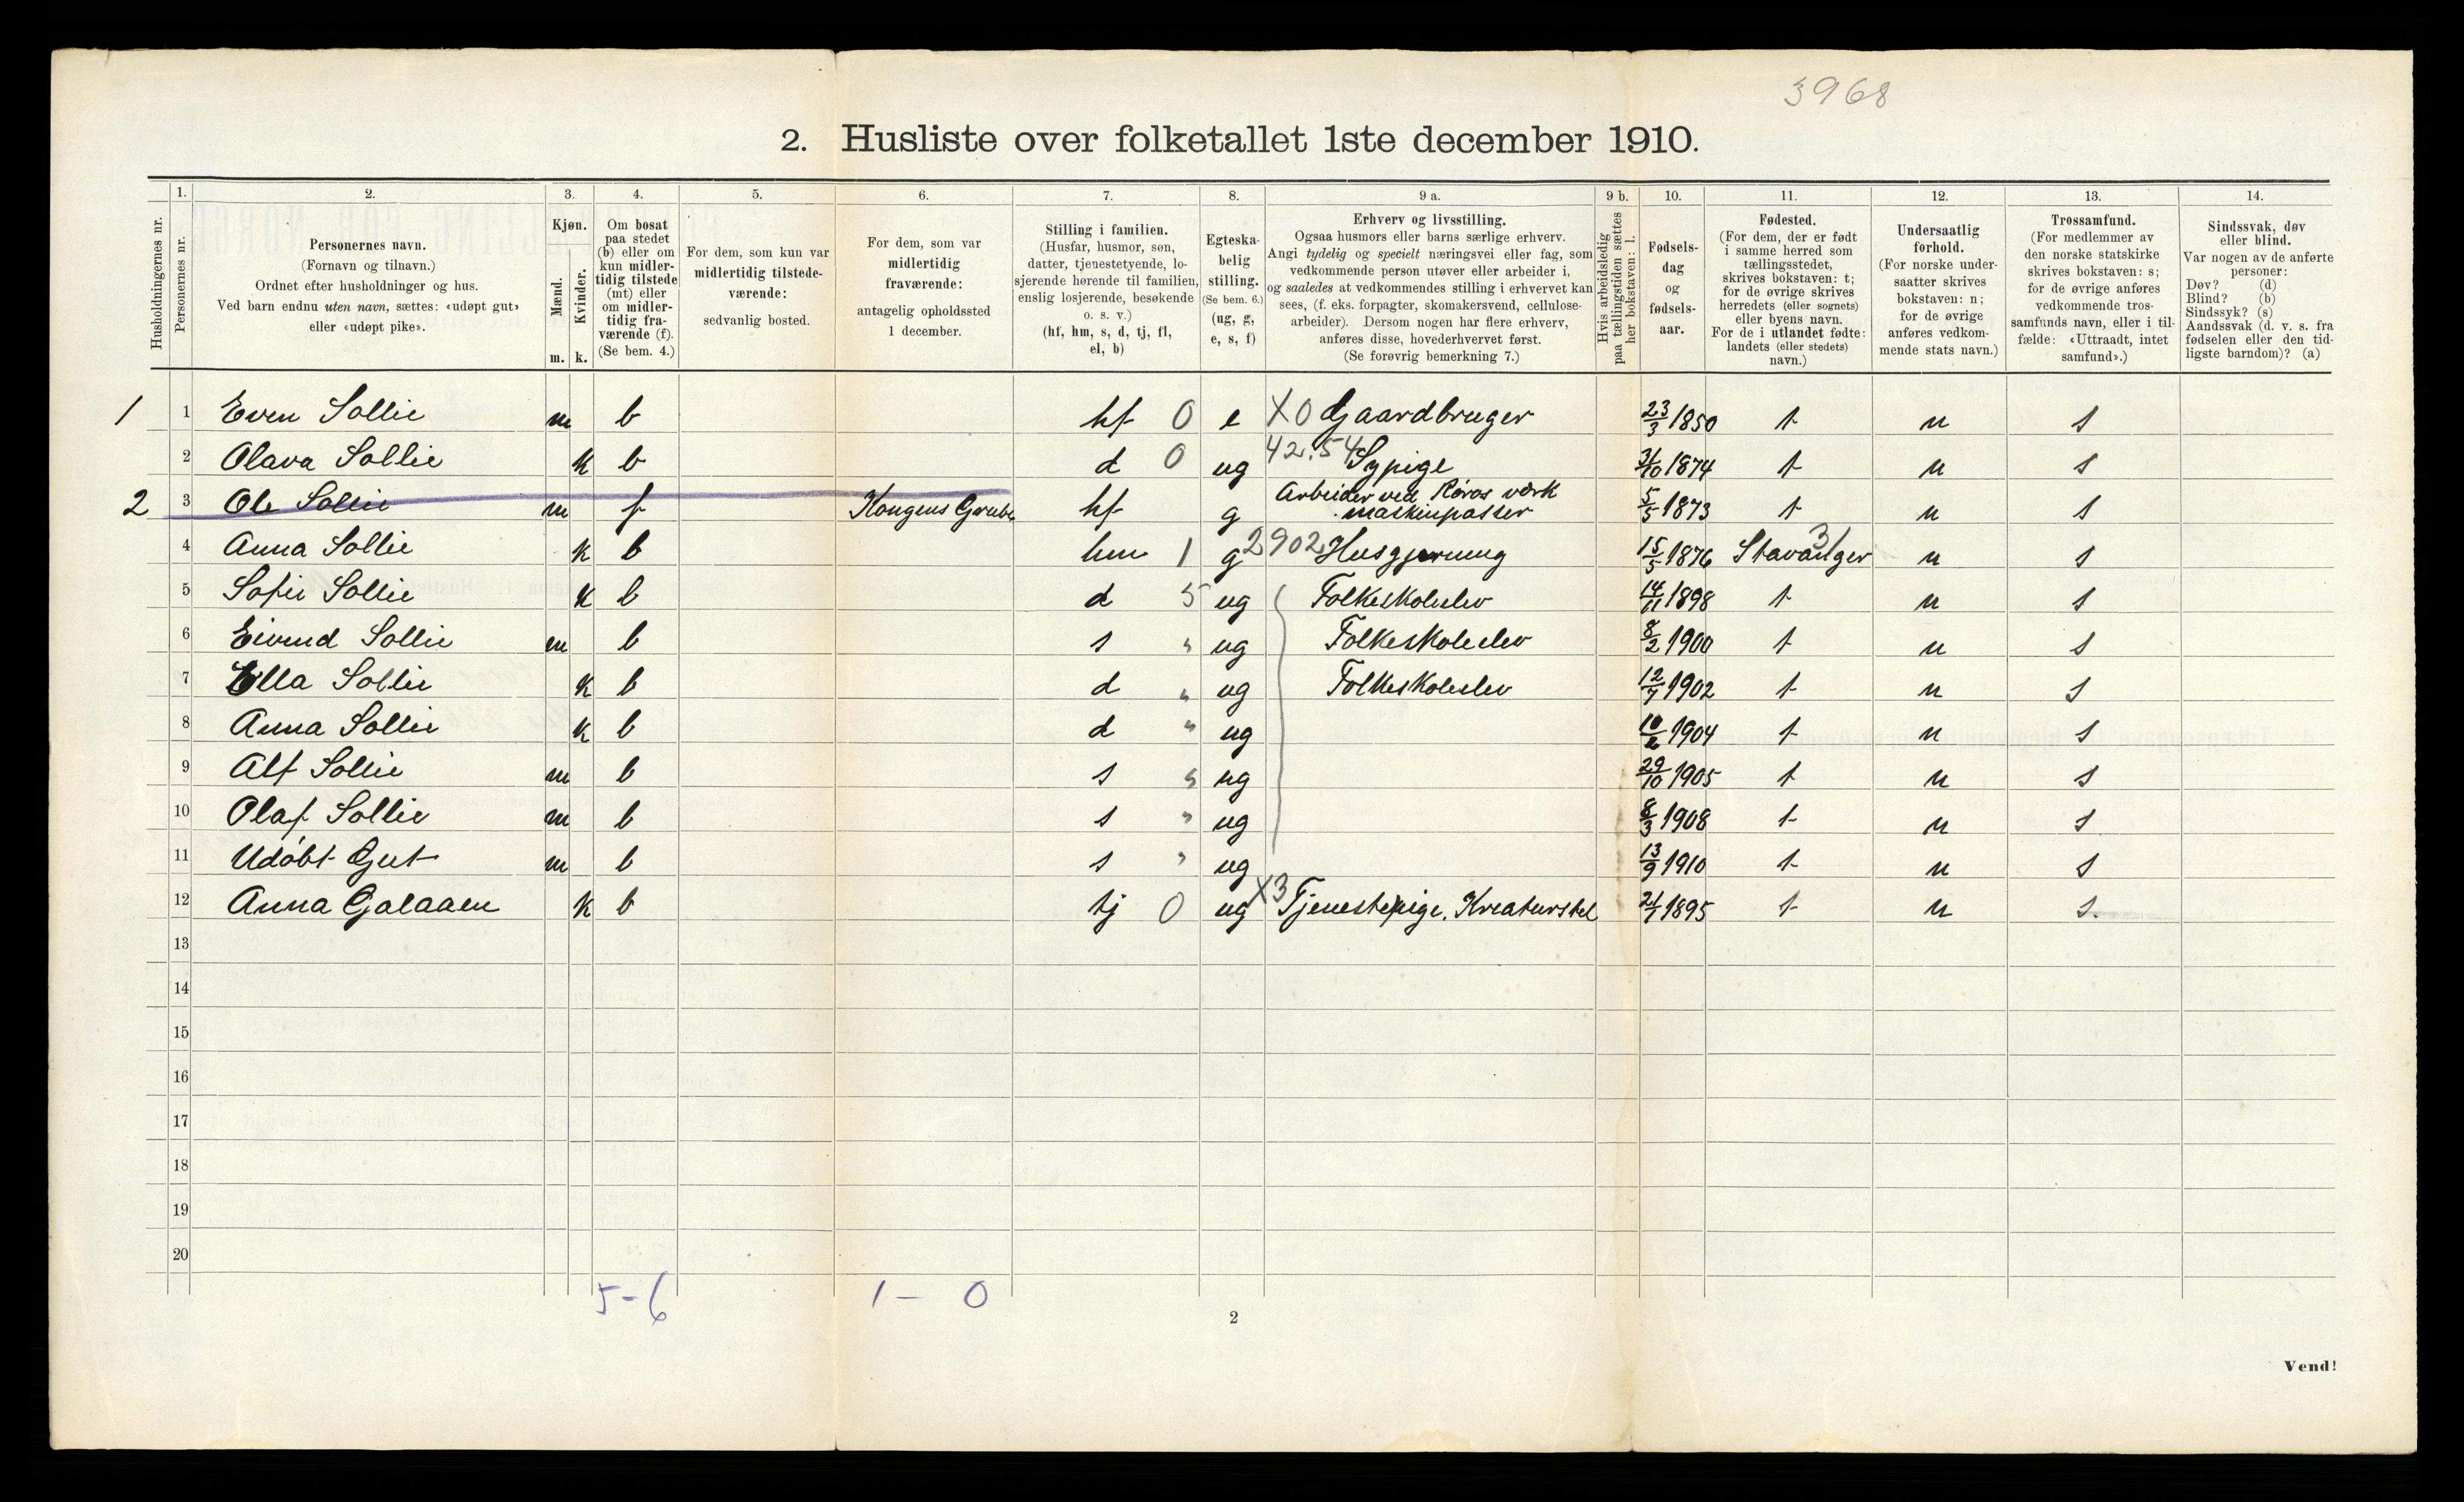 3968
2. Husliste over folketallet 1ste december 1910.
Husholdningernes nr.
1.
Personernes nr.
2.
Personernes navn.
(Fornavn og tilnavn.)
Ordnet efter husholdninger og hus.
Ved barn endnu uten navn, sættes: «udøpt gut»
eller «udøpt pike».
3.
Kjøn.
Mænd.
Kvinder.
m. k.
4.
Om bosat
paa stedet
(b) eller om
kun midler-
tidig tilstede
(mt) eller
om midler-
tidig fra-
værende (f).
(Se bem. 4.)
5.
For dem, som kun var
midlertidig tilstede-
værende:
sedvanlig bosted.
6.
For dem, som var
midlertidig
fraværende:
antagelig opholdssted
1 december.
7.
Stilling i familien.
(Husfar, husmor, søn,
datter, tjenestetyende, lo-
sjerende hørende til familien,
enslig losjerende, besøkende
o. s. v.)
(hf, hm, s, d, tj, fl,
el, b)
8.
Egteska-
belig
stilling.
(Se bem. 6.)
(ug, g,
e, s, f)
9 a.
Erhverv og livsstilling.
Ogsaa husmors eller barns særlige erhverv.
Angi tydelig og specielt næringsvei eller fag, som
vedkommende person utøver eller arbeider i,
og saaledes at vedkommendes stilling i erhvervet kan
sees, (f. eks. forpagter, skomakersvend, cellulose-
arbeider). Dersom nogen har flere erhverv,
anføres disse, hovederhvervet først.
(Se forøvrig bemerkning 7.)
9 b.
Hvis arbeidsledig
paa tællingstiden sættes
her bokstaven: l.
10.
Fødsels-
dag
og
fødsels-
aar.
11.
Fødested.
(For dem, der er født
i samme herred som
tællingsstedet,
skrives bokstaven: t;
for de øvrige skrives
herredets (eller sognets)
eller byens navn.
For de i utlandet fødte:
landets (eller stedets)
navn.)
12.
Undersaatlig
forhold.
(For norske under-
saatter skrives
bokstaven: n;
for de øvrige
anføres vedkom-
mende stats navn.)
13.
Trossamfund.
(For medlemmer av
den norske statskirke
skrives bokstaven: s;
for de øvrige anføres
vedkommende tros-
samfunds navn, eller i til-
fælde: «Uttraadt, intet
samfund».)
14.
Sindssvak, døv
eller blind.
Var nogen av de anførte
personer:
Døv? (d)
Blind? (b)
Sindssyk? (s)
Aandssvak (d. v. s. fra
fødselen eller den tid-
ligste barndom)? (a)
1 1 Even Sollie m b hf 0 e X0 Gaardbruger 23/3 1850 t n s
2 Olava Sollie k b d 0 ug 42.54 Sypige 31/10 1874 t n s
2 3 Ole Sollie m f Kongens Grube hf g Arbeider ved Røros værk maskinpasser 5/5 1873 t n s
4 Anna Sollie k b hm 1 g 2902 Husgjerning 15/5 1876 Stavanger 31 n s
5 Sofie Sollie k b d 5 ug Folkeskolelev 14/11 1898 t n s
6 Eivind Sollie m b s " ug Folkeskoleelev 8/2 1900 t n s
7 Ella Sollie k b d " ug Folkeskolelev 12/7 1902 t n s
8 Anna Sollie k b d " ug 1904 t n s
9 Alf Sollie m b s " ug 29/10 1905 t n s
10 Olaf Sollie m b s " ug 8/3 1908 t n s
11 Udøbt Gut m b s " ug 13/9 1910 t n s
12 Anna Galaaen k b tj 0 ug X3 Tjenestepige, Kreaturstel 21/7 1895 t n s.
13
14
15
16
17
18
19
20
5-6 1 - 0
2
Vend!